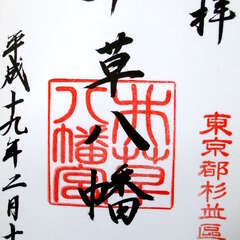 拝
東京都杉並區
草八幡
井草
八幡宮
平成十九年二月十